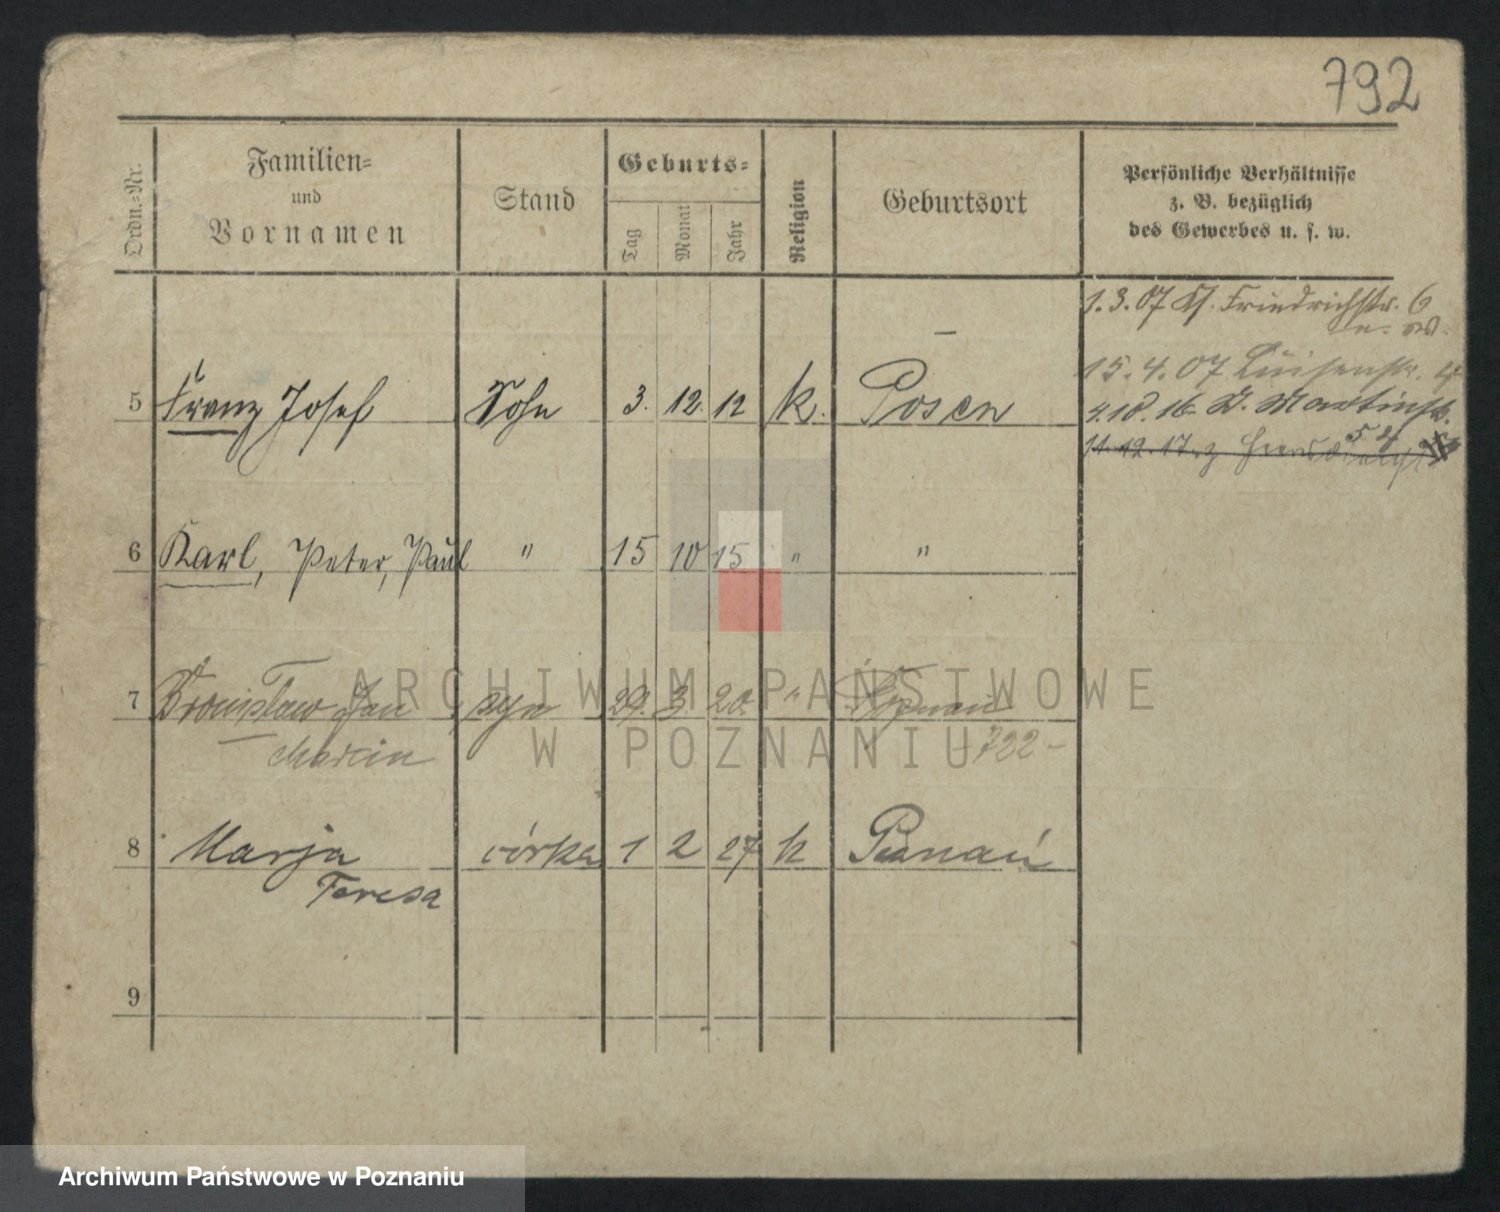 792
Ordn.-Nr.
Familien-
und
Vornamen
Stand
Geburts-
Tag
Monat
Jahr
Religion
Geburtsort
Persönliche Verhältnisse
z. B. bezüglich
des Gewerbes u. s. w.
1.3.07 Friedrichstr. 6
15.4.07
5 Franz Josef Sohn 3. 12. 12 k. Posen
4.10.16 Martinstr.
54
11.12.17
6 Karl, Peter, Paul " 15 10 15 " "
7 Bronisław Jan syn 29. 3 20. " Poznań
Marcin 722-
8 Marja córka 1 2 27 k Poznań
Teresa
9
ARCHIWUM PAŃSTWOWE
W POZNANIU
Archiwum Państwowe w Poznaniu